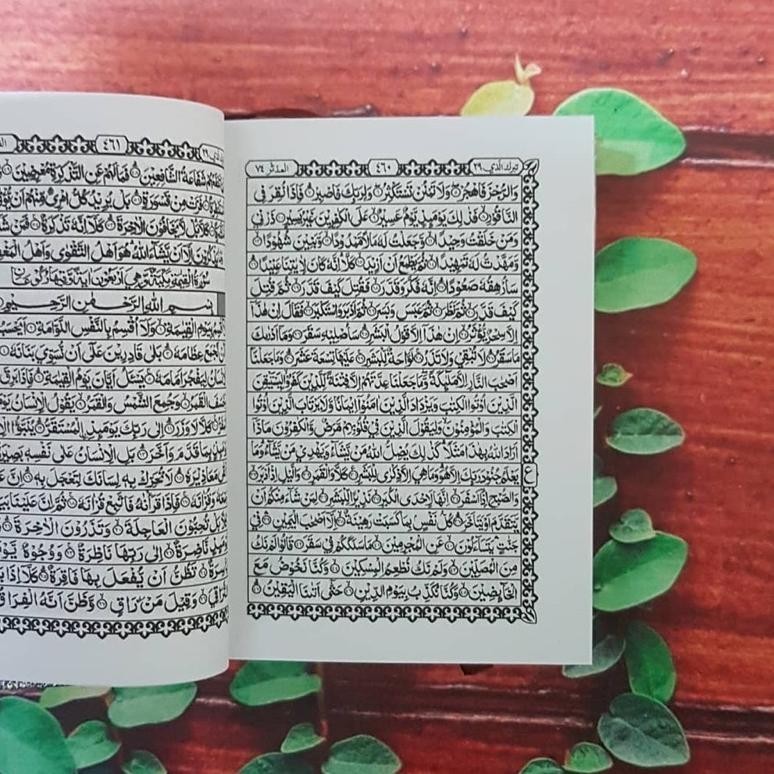 تبرك الذي ٢٩
٤٦٠
المدثر ٧٤
وَالرُّجْزَ فَاهْجُرْ وَلَا تَمْنُنْ تَسْتَكْثِرُ وَلِرَبِّكَ فَاصْبِرْ فَإِذَا نُقِرَ فِي
النَّاقُورِ فَذٰلِكَ يَوْمَئِذٍ يَوْمٌ عَسِيرٌ عَلَى الْكٰفِرِينَ غَيْرُ يَسِيرٍ ذَرْنِي
وَمَنْ خَلَقْتُ وَحِيدًا وَجَعَلْتُ لَهُ مَالًا مَمْدُودًا وَبَنِينَ شُهُودًا
وَمَهَّدْتُ لَهُ تَمْهِيدًا ثُمَّ يَطْمَعُ أَنْ أَزِيدَ كَلَّا إِنَّهُ كَانَ لِاٰيٰتِنَا عَنِيدًا
سَأُرْهِقُهُ صَعُودًا إِنَّهُ فَكَّرَ وَقَدَّرَ فَقُتِلَ كَيْفَ قَدَّرَ ثُمَّ قُتِلَ
كَيْفَ قَدَّرَ ثُمَّ نَظَرَ ثُمَّ عَبَسَ وَبَسَرَ ثُمَّ أَدْبَرَ وَاسْتَكْبَرَ فَقَالَ إِنْ هٰذَا
إِلَّا سِحْرٌ يُؤْثَرُ إِنْ هٰذَا إِلَّا قَوْلُ الْبَشَرِ سَأُصْلِيهِ سَقَرَ وَمَا أَدْرٰىكَ
مَا سَقَرُ لَا تُبْقِي وَلَا تَذَرُ لَوَّاحَةٌ لِلْبَشَرِ عَلَيْهَا تِسْعَةَ عَشَرَ وَمَا جَعَلْنَا
أَصْحٰبَ النَّارِ إِلَّا مَلٰئِكَةً وَمَا جَعَلْنَا عِدَّتَهُمْ إِلَّا فِتْنَةً لِلَّذِينَ كَفَرُوا لِيَسْتَيْقِنَ
الَّذِينَ أُوتُوا الْكِتٰبَ وَيَزْدَادَ الَّذِينَ اٰمَنُوا إِيمَانًا وَلَا يَرْتَابَ الَّذِينَ أُوتُوا
الْكِتٰبَ وَالْمُؤْمِنُونَ وَلِيَقُولَ الَّذِينَ فِي قُلُوبِهِمْ مَرَضٌ وَالْكٰفِرُونَ مَاذَا
أَرَادَ اللهُ بِهٰذَا مَثَلًا كَذٰلِكَ يُضِلُّ اللهُ مَنْ يَشَاءُ وَيَهْدِي مَنْ يَشَاءُ وَمَا
يَعْلَمُ جُنُودَ رَبِّكَ إِلَّا هُوَ وَمَا هِيَ إِلَّا ذِكْرٰى لِلْبَشَرِ كَلَّا وَالْقَمَرِ وَالَّيْلِ إِذْ أَدْبَرَ
وَالصُّبْحِ إِذَا أَسْفَرَ إِنَّهَا لَإِحْدَى الْكُبَرِ نَذِيرًا لِلْبَشَرِ لِمَنْ شَاءَ مِنْكُمْ أَنْ
يَتَقَدَّمَ أَوْ يَتَأَخَّرَ كُلُّ نَفْسٍ بِمَا كَسَبَتْ رَهِينَةٌ إِلَّا أَصْحٰبَ الْيَمِينِ فِي
جَنّٰتٍ يَتَسَاءَلُونَ عَنِ الْمُجْرِمِينَ مَا سَلَكَكُمْ فِي سَقَرَ قَالُوا لَمْ نَكُ
مِنَ الْمُصَلِّينَ وَلَمْ نَكُ نُطْعِمُ الْمِسْكِينَ وَكُنَّا نَخُوضُ مَعَ
الْخَائِضِينَ وَكُنَّا نُكَذِّبُ بِيَوْمِ الدِّينِ حَتّٰى أَتٰىنَا الْيَقِينُ
٤٦١
شَفَاعَةُ الشَّافِعِينَ فَمَا لَهُمْ عَنِ التَّذْكِرَةِ مُعْرِضِينَ
مِنْ قَسْوَرَةٍ بَلْ يُرِيدُ كُلُّ امْرِئٍ مِنْهُمْ أَنْ
بَلْ لَا يَخَافُونَ الْاٰخِرَةَ كَلَّا إِنَّهُ تَذْكِرَةٌ فَمَنْ
إِلَّا أَنْ يَشَاءَ اللهُ هُوَ أَهْلُ التَّقْوٰى وَأَهْلُ
بِسْمِ اللهِ الرَّحْمٰنِ الرَّحِيمِ
بِيَوْمِ الْقِيٰمَةِ وَلَا أُقْسِمُ بِالنَّفْسِ اللَّوَّامَةِ
نَجْمَعَ عِظَامَهُ بَلٰى قَادِرِينَ عَلٰى أَنْ نُسَوِّيَ بَنَانَهُ
لِيَفْجُرَ أَمَامَهُ يَسْئَلُ أَيَّانَ يَوْمُ الْقِيٰمَةِ فَإِذَا
الْقَمَرُ وَجُمِعَ الشَّمْسُ وَالْقَمَرُ يَقُولُ الْإِنْسَانُ
لَا وَزَرَ إِلٰى رَبِّكَ يَوْمَئِذٍ الْمُسْتَقَرُّ
بِمَا قَدَّمَ وَأَخَّرَ بَلِ الْإِنْسَانُ عَلٰى نَفْسِهِ
مَعَاذِيرَهُ لَا تُحَرِّكْ بِهِ لِسَانَكَ لِتَعْجَلَ بِهِ إِنَّ
وَقُرْاٰنَهُ فَإِذَا قَرَأْنٰهُ فَاتَّبِعْ قُرْاٰنَهُ ثُمَّ إِنَّ عَلَيْنَا
بَلْ تُحِبُّونَ الْعَاجِلَةَ وَتَذَرُونَ الْاٰخِرَةَ
نَاضِرَةٌ إِلٰى رَبِّهَا نَاظِرَةٌ وَوُجُوهٌ
تَظُنُّ أَنْ يُفْعَلَ بِهَا فَاقِرَةٌ كَلَّا إِذَا
وَقِيلَ مَنْ رَاقٍ وَظَنَّ أَنَّهُ الْفِرَاقُ